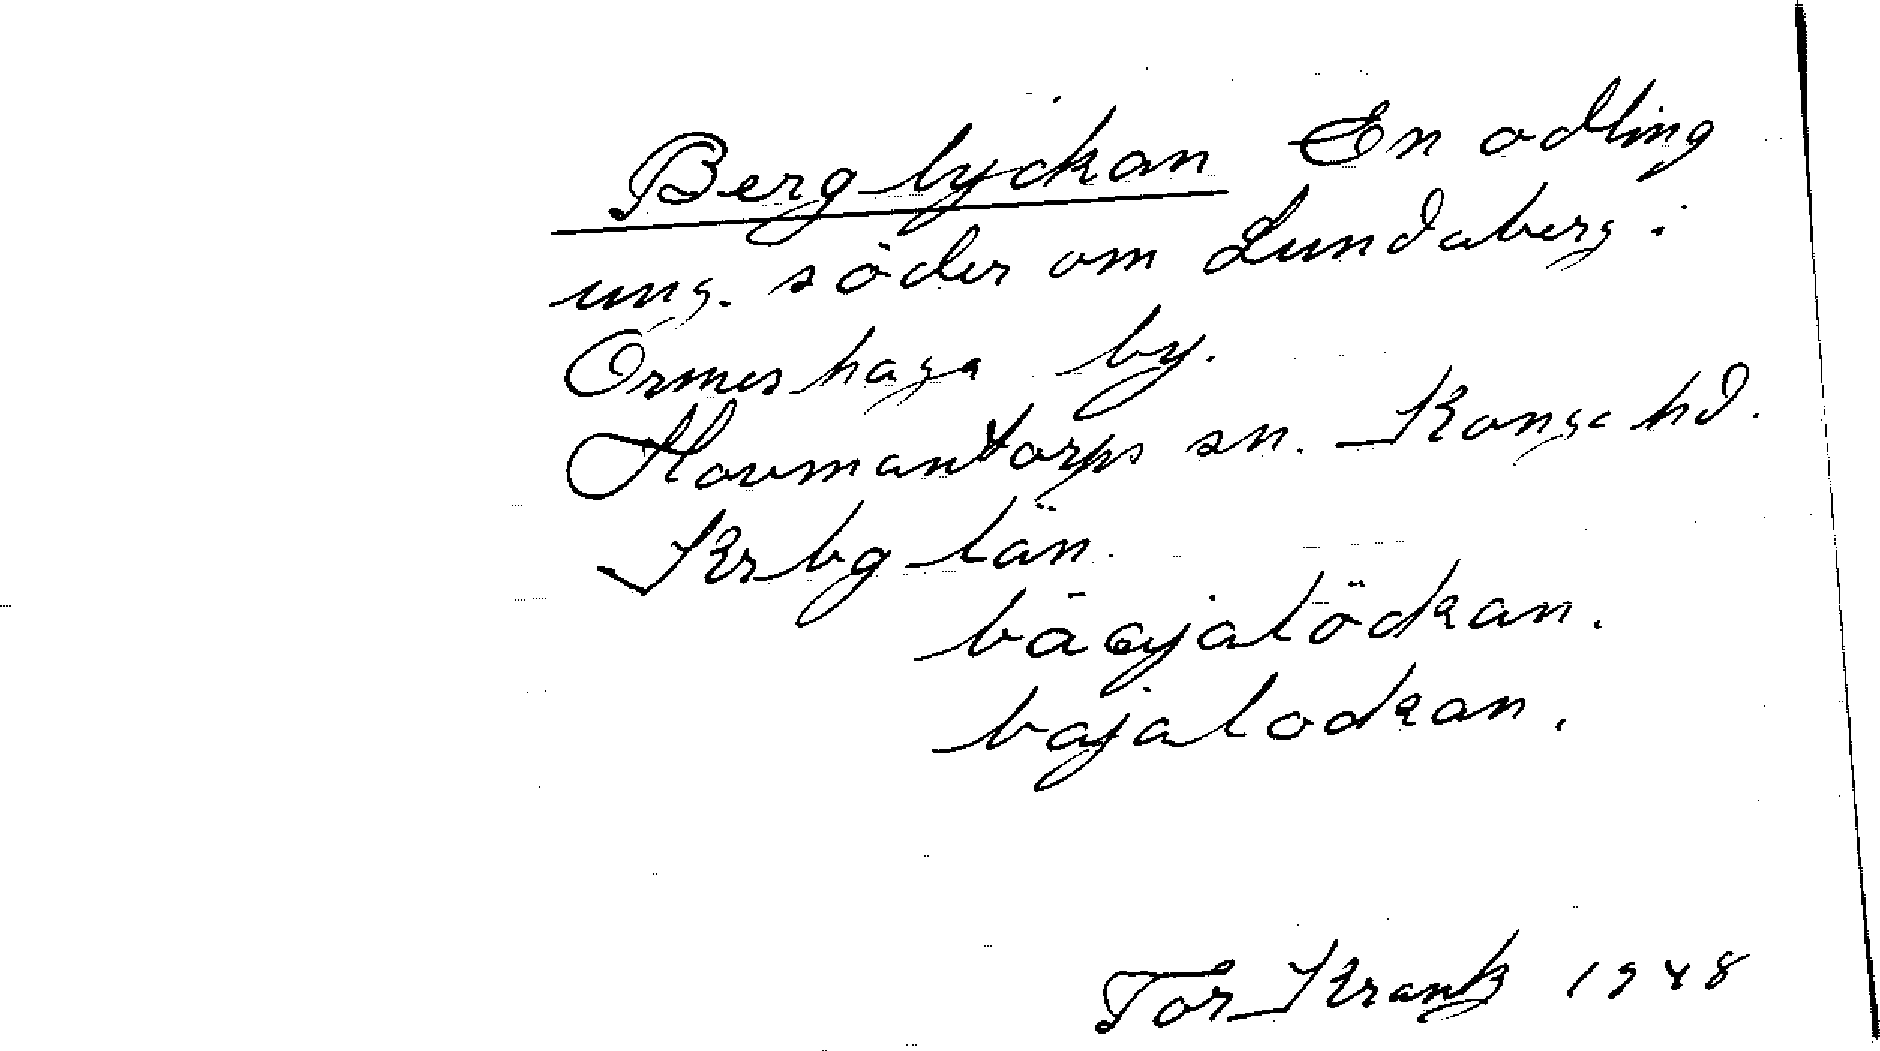 Berglyckan En odling
ung. söder om Lundaberg i
Ormeshaga by.
Hovmantorps sn. Konga hd.
Krbg län.
bäajalöckan.
bajalockan.
Tor Krank 1948